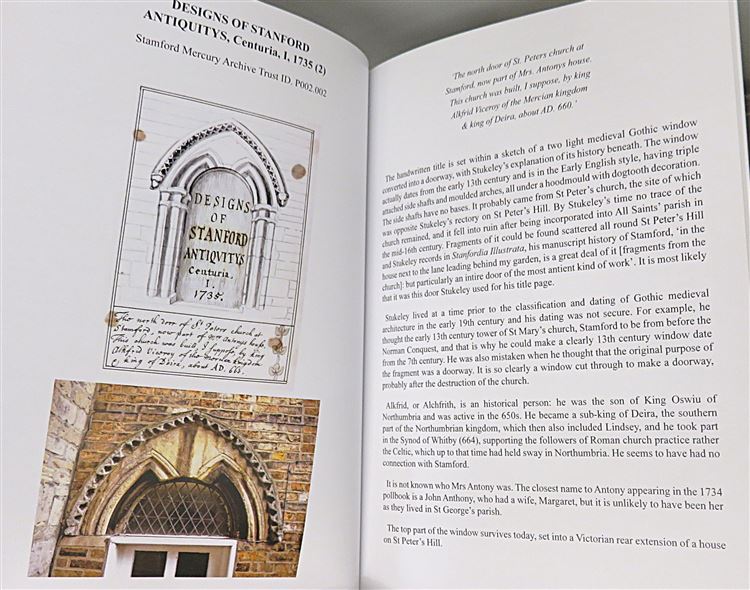 DESIGNS OF STANFORD
ANTIQUITYS, Centuria, I, 1735 (2)
Stamford Mercury Archive Trust ID. P002.002
DESIGNS
OF
STANFORD
ANTIQUITYS
Centuria.
I.
1735.
The north door of St Peters church at
Stamford, now part of Mrs Antonys house.
This church was built, I suppose, by king
Alkfrid Viceroy of the Mercian kingdom
& king of Deira, about AD. 660.
'The north door of St. Peters church at
Stamford, now part of Mrs. Antonys house.
This church was built, I suppose, by king
Alkfrid Viceroy of the Mercian kingdom
& king of Deira, about AD. 660.'
The handwritten title is set within a sketch of a two light medieval Gothic window
converted into a doorway, with Stukeley's explanation of its history beneath. The window
actually dates from the early 13th century and is in the Early English style, having triple
attached side shafts and moulded arches, all under a hoodmould with dogtooth decoration.
The side shafts have no bases. It probably came from St Peter's church, the site of which
was opposite Stukeley's rectory on St Peter's Hill. By Stukeley's time no trace of the
church remained, and it fell into ruin after being incorporated into All Saints' parish in
the mid-16th century. Fragments of it could be found scattered all round St Peter's Hill
and Stukeley records in Stanfordia Illustrata, his manuscript history of Stamford, 'in the
house next to the lane leading behind my garden, is a great deal of it [fragments from the
church]: but particularly an intire door of the most antient kind of work'. It is most likely
that it was this door Stukeley used for his title page.
Stukeley lived at a time prior to the classification and dating of Gothic medieval
architecture in the early 19th century and his dating was not secure. For example, he
thought the early 13th century tower of St Mary's church, Stamford to be from before the
Norman Conquest, and that is why he could make a clearly 13th century window date
from the 7th century. He was also mistaken when he thought that the original purpose of
the fragment was a doorway. It is so clearly a window cut through to make a doorway,
probably after the destruction of the church.
Alkfrid, or Alchfrith, is an historical person: he was the son of King Oswiu of
Northumbria and was active in the 650s. He became a sub-king of Deira, the southern
part of the Northumbrian kingdom, which then also included Lindsey, and he took part
in the Synod of Whitby (664), supporting the followers of Roman church practice rather
the Celtic, which up to that time had held sway in Northumbria. He seems to have had no
connection with Stamford.
It is not known who Mrs Antony was. The closest name to Antony appearing in the 1734
pollbook is a John Anthony, who had a wife, Margaret, but it is unlikely to have been her
as they lived in St George's parish.
The top part of the window survives today, set into a Victorian rear extension of a house
on St Peter's Hill.